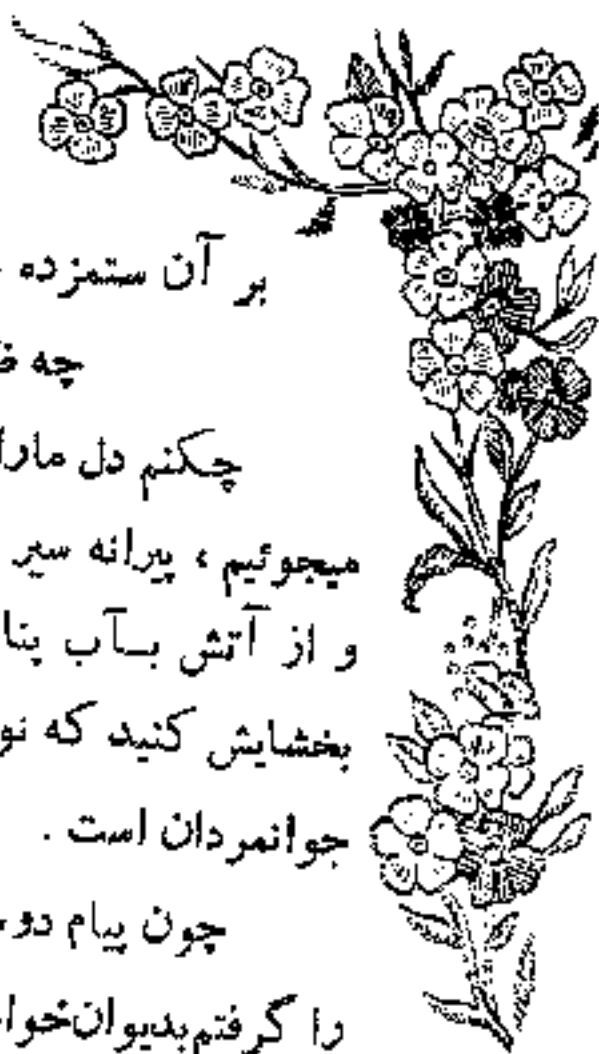 بر آن ستمزده
چه
چکنم دل مارا
میجوئیم ، پیرانه سیر
و از آتش بـآب
بخشایش کنید که
جوانمردان است .
چون پیام
را گرفتم بدیوان